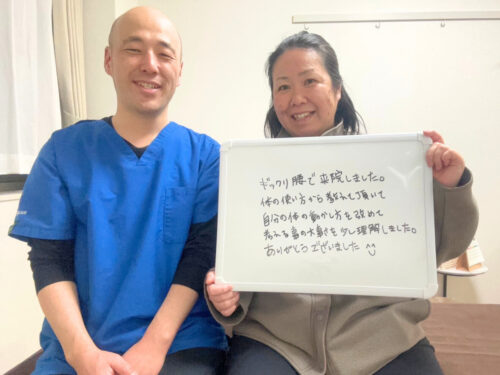 ギックリ腰で来院しました。
体の使い方から教えて頂いて
自分の体の動かし方を改めて
考える事の大事さを少し理解しました。
ありがとうございました